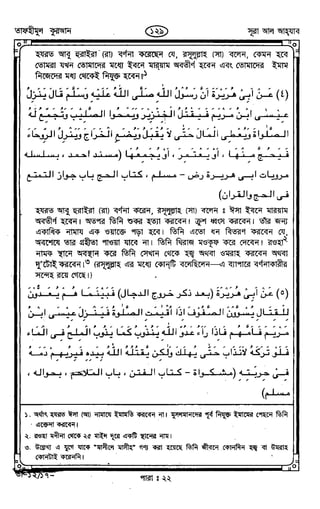 তাফহীমুল কুরআন
১২৯
সূরা আল আহ্যাব
হযরত আবু হুরাইরা (রা) বর্ণনা করেছেন যে, রসূলুল্লাহ (সা) বলেন, কেমন হবে
তোমরা যখন তোমাদের মধ্যে ইবনে মারয়াম অবতীর্ণ হবেন এবং তোমাদের ইমাম
নিজেদের মধ্য থেকেই নিযুক্ত হবেন।১
(٤) عَنْ أَبِى هُرَيْرَةَ أَنَّ رَسُوْلَ اللهِ صَلَّى اللهُ عَلَيْهِ وَسَلَّمَ قَالَ يَنْزِلُ
عِيْسَى ابْنُ مَرْيَمَ فَيَقْتُلُ الْخِنْزِيْرَ وَيَمْحُوا الصَّلِيْبَ وَتُجْمَعُ لَهُ
الصَّلوٰةُ وَيُعْطِى الْمَالَ حَتّٰى لاَ يُقْبَلُ وَيَضَعُ الْخَرَاجَ وَيَنْزِلُ الرَّوْحَاءَ
فَيَحُجُّ مِنْهَا ، أَوْ يَعْتَمِرُ ، أَوْ يَجْمَعُهَا (مسند احمد ، بسلسله
مرويات ابى هريرة رض - مسلم ، كتاب الحج باب جواز التمتع
فى الحج والقران)
হযরত আবু হুরাইরা (রা) বর্ণনা করেন, রসূলুল্লাহ (সা) বলেন ঃ ঈসা ইবনে মারয়াম
অবতীর্ণ হবেন। অতপর তিনি শুকর হত্যা করবেন। ক্রুশ ধ্বংস করবেন। তাঁর জন্য
একাধিক নামায এক ওয়াক্তে পড়া হবে। তিনি এতো ধন বিতরণ করবেন যে,
অবশেষে তার গ্রহীতা পাওয়া যাবে না। তিনি খিরাজ মওকুফ করে দেবেন। রওহা২
নামক স্থানে অবস্থান করে তিনি সেখান থেকে হজ্ব অথবা ওমরাহ করবেন অথবা
দু'টোই করবেন।৩ (রসূলুল্লাহ এর মধ্যে কোন্‌টি বলেছিলেন—এ ব্যাপারে বর্ণনাকারীর
সন্দেহ রয়ে গেছে।)
(٥) عَنْ أَبِى هُرَيْرَةَ (بعد ذكر خروج الدجال) فَبَيْنَمَا هُمْ يُعِدُّوْنَ
لِلْقِتَالِ يُسَوُّوْنَ الصُّفُوْفَ اذَا أُقِيْمَتِ الصَّلوٰةُ فَيَنْزِلُ عِيْسَى ابْنُ
مَرْيَمَ فَأَمَّهُمْ فَاذَا رَاٰهُ عَدُوُّ اللهِ يَذُوْبُ كَمَا يَذُوْبُ الْمِلْحُ فِى الْمَاءِ،
فَلَوْ تَرَكَهُ لاَنْذَابَ حَتّٰى يَهْلِكَ وَلٰكِنْ يَقْتُلُهُ اللهُ بِيَدِهِ فَيُرِيْهِمْ دَمَهُ
فِى حَرْبَتِهِ (مشكوٰة - كتاب الفتن ، باب الملاحم ، بحواله ،
مسلم)
১. অর্থাৎ হযরত ঈসা (আ) নামাযে ইমামতি করবেন না। মুসলমানদের পূর্ব নিযুক্ত ইমামের পেছনে তিনি
এক্‌তেদা করবেন।
২. রওহা মদীনা থেকে ৩৫ মাইল দূরে একটি স্থানের নাম।
কোনটাই করেননি।
পারা ঃ ২২